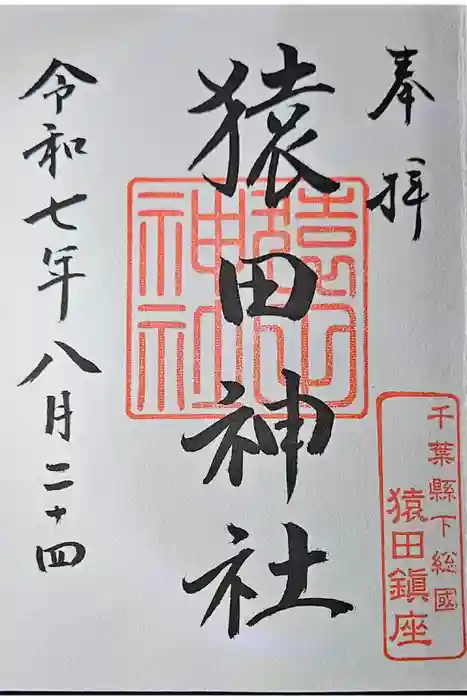 奉拝
千葉縣下総國
猿田鎮座
猿田神社
猿田
神社
令和七年八月二十四